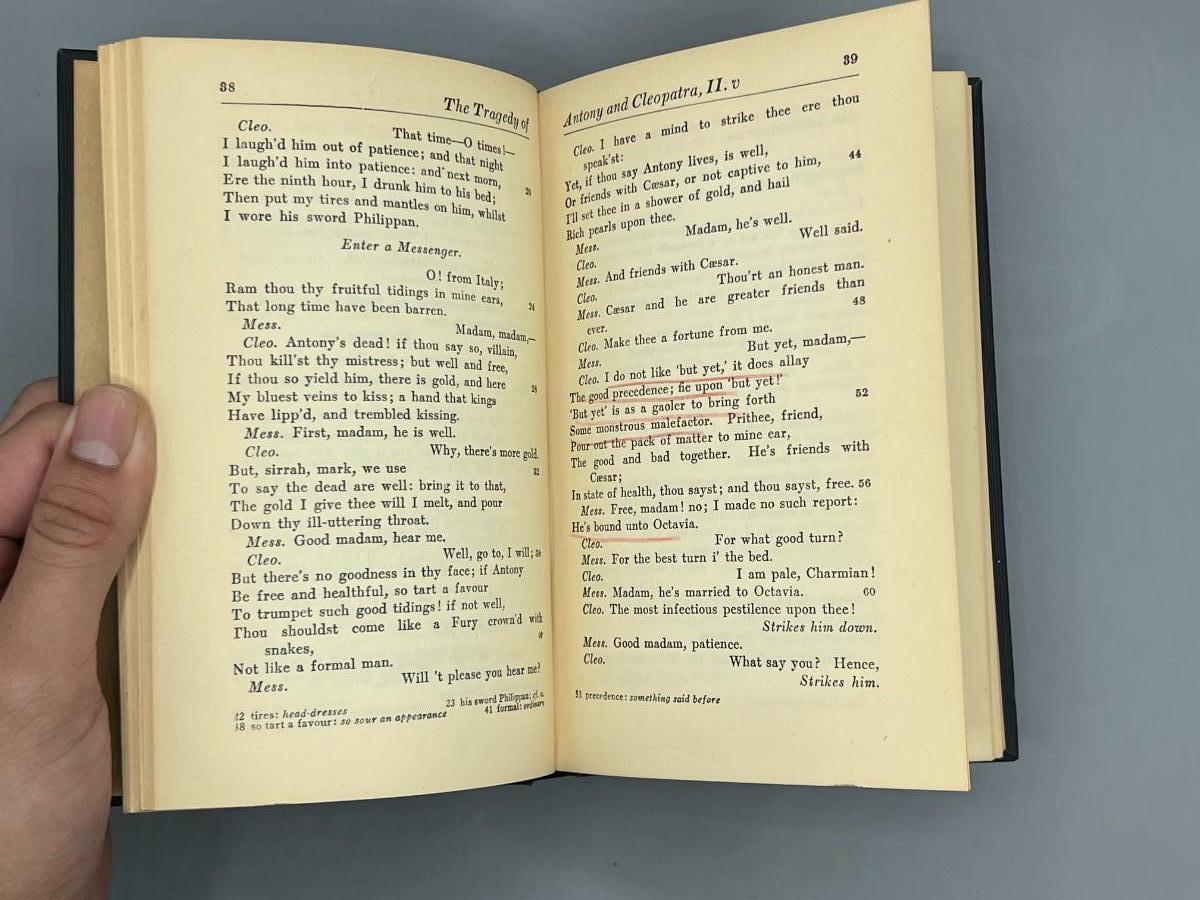 38
The Tragedy of
Cleo. That time—O times!—
I laugh'd him out of patience; and that night
I laugh'd him into patience: and next morn,
Ere the ninth hour, I drunk him to his bed; 20
Then put my tires and mantles on him, whilst
I wore his sword Philippan.
Enter a Messenger.
O! from Italy;
Ram thou thy fruitful tidings in mine ears, 24
That long time have been barren.
Mess. Madam, madam,—
Cleo. Antony's dead! if thou say so, villain,
Thou kill'st thy mistress; but well and free,
If thou so yield him, there is gold, and here 28
My bluest veins to kiss; a hand that kings
Have lipp'd, and trembled kissing.
Mess. First, madam, he is well.
Cleo. Why, there's more gold.
But, sirrah, mark, we use 32
To say the dead are well: bring it to that,
The gold I give thee will I melt, and pour
Down thy ill-uttering throat.
Mess. Good madam, hear me.
Cleo. Well, go to, I will; 36
But there's no goodness in thy face; if Antony
Be free and healthful, so tart a favour
To trumpet such good tidings! if not well,
Thou shouldst come like a Fury crown'd with
snakes,
Not like a formal man.
Mess. Will 't please you hear me?
22 tires: head-dresses 23 his sword Philippan: cf. n.
38 so tart a favour: so sour an appearance 41 formal: ordinary
Antony and Cleopatra, II. v
39
Cleo. I have a mind to strike thee ere thou
speak'st:
Yet, if thou say Antony lives, is well, 44
Or friends with Cæsar, or not captive to him,
I'll set thee in a shower of gold, and hail
Rich pearls upon thee.
Mess. Madam, he's well.
Cleo. Well said.
Mess. And friends with Cæsar.
Cleo. Thou'rt an honest man.
Mess. Cæsar and he are greater friends than
ever. 48
Cleo. Make thee a fortune from me.
Mess. But yet, madam,—
Cleo. I do not like 'but yet,' it does allay
The good precedence; fie upon 'but yet!'
'But yet' is as a gaoler to bring forth 52
Some monstrous malefactor. Prithee, friend,
Pour out the pack of matter to mine ear,
The good and bad together. He's friends with
Cæsar;
In state of health, thou sayst; and thou sayst, free. 56
Mess. Free, madam! no; I made no such report:
He's bound unto Octavia.
Cleo. For what good turn?
Mess. For the best turn i' the bed.
Cleo. I am pale, Charmian!
Mess. Madam, he's married to Octavia. 60
Cleo. The most infectious pestilence upon thee!
Strikes him down.
Mess. Good madam, patience.
Cleo. What say you? Hence,
Strikes him.
51 precedence: something said before